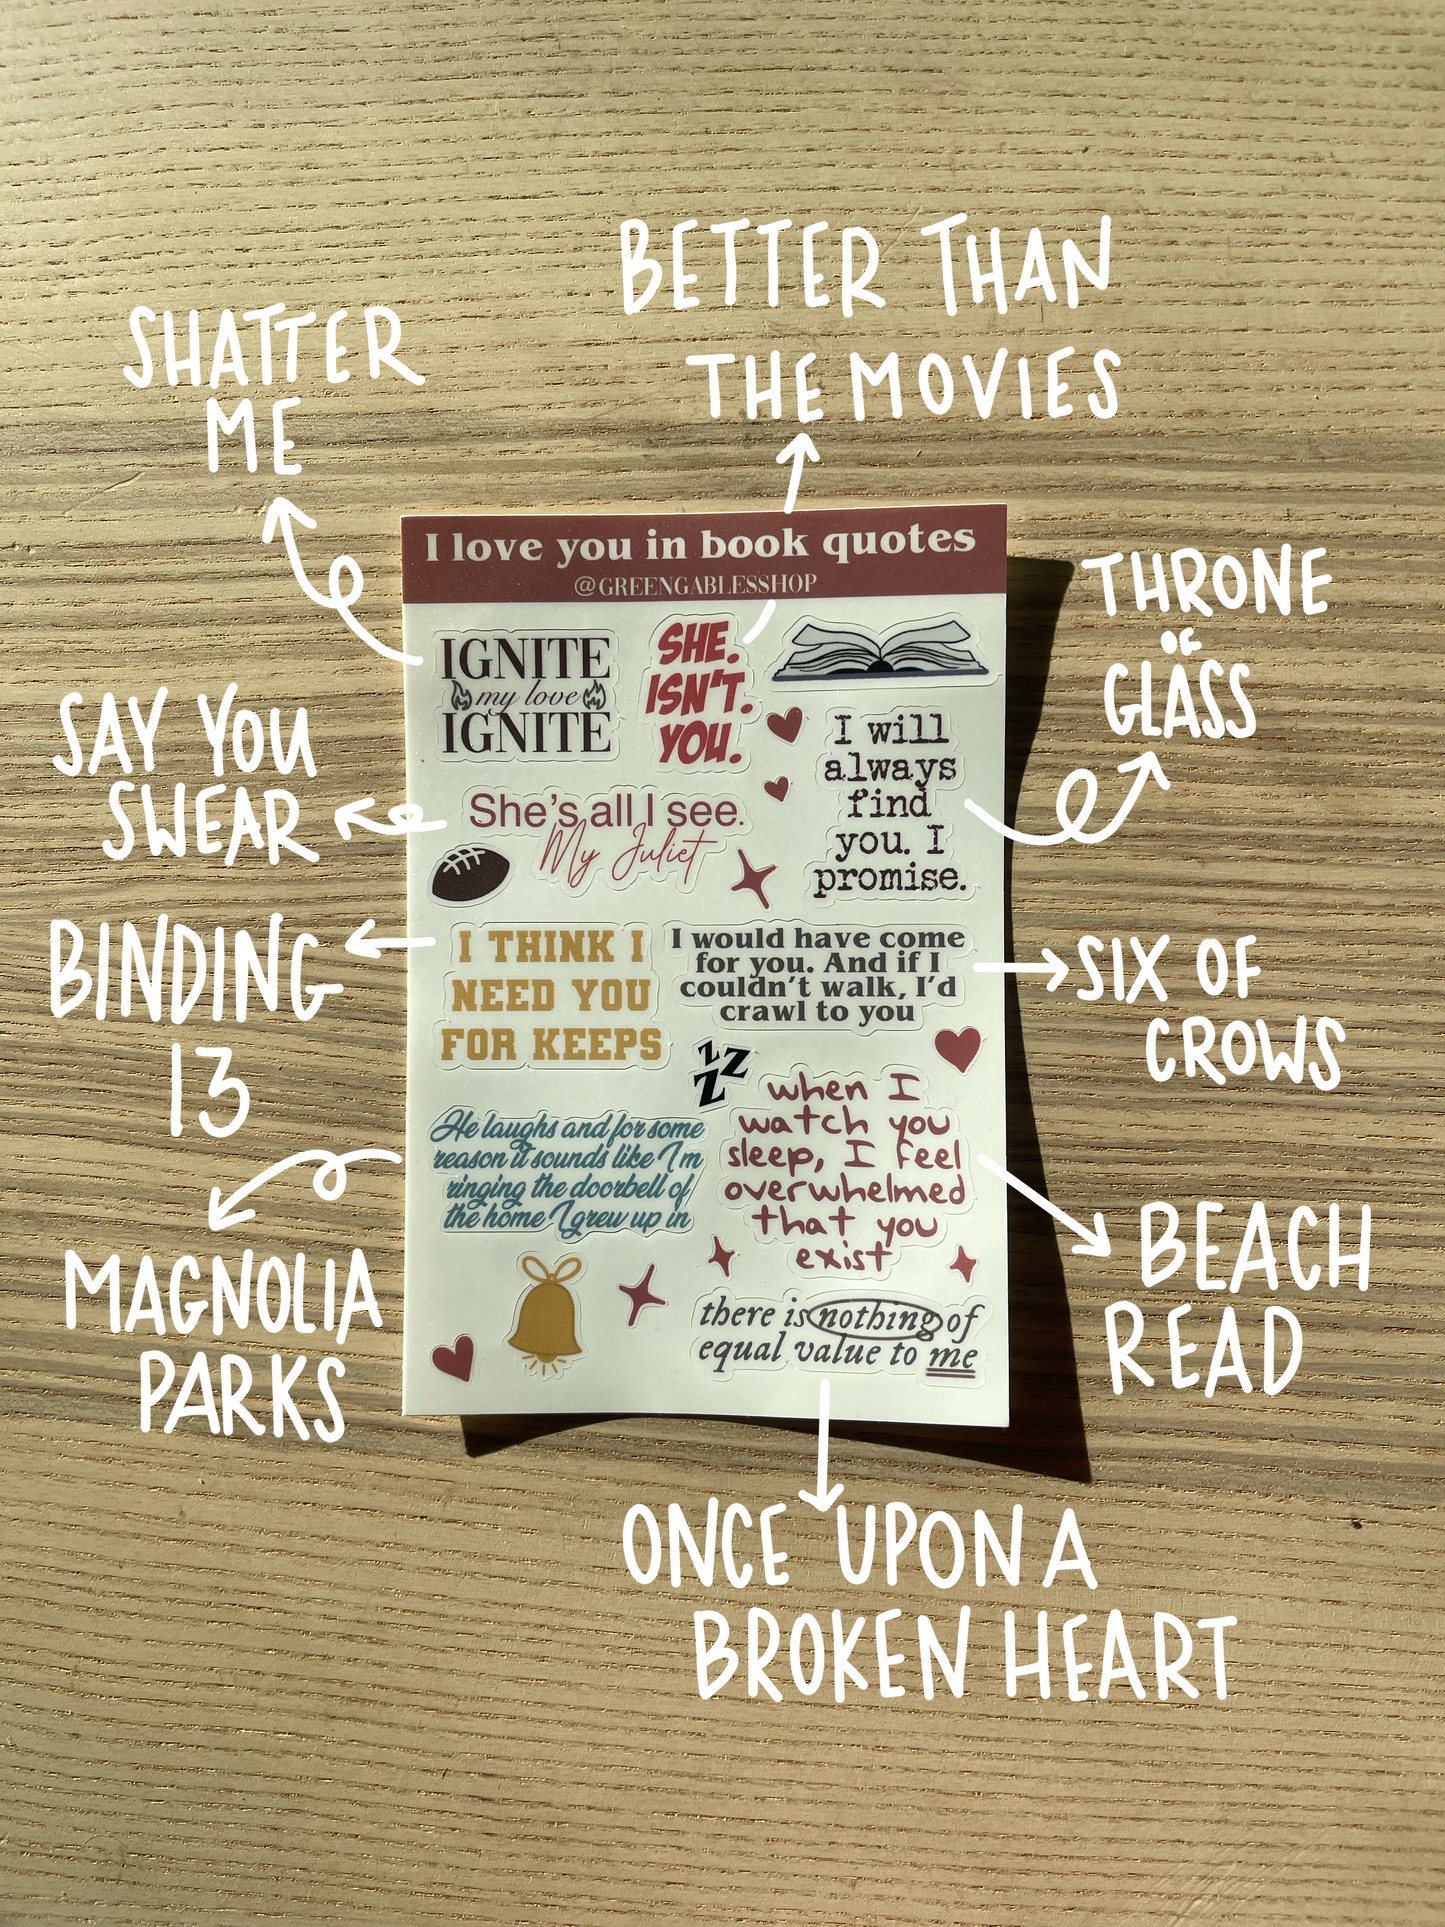 BETTER THAN
THE MOVIES
SHATTER
ME
I love you in book quotes
@GREENGABLESSHOP
THRONE
OF
GLASS
IGNITE
my love
IGNITE
SHE.
ISN'T.
YOU.
I will
always
find
you. I
promise.
SAY YOU
SWEAR
She's all I see.
My Juliet
BINDING
13
I THINK I
NEED YOU
FOR KEEPS
I would have come
for you. And if I
couldn't walk, I'd
crawl to you
SIX OF
CROWS
z z
z
He laughs and for some
reason it sounds like I'm
ringing the doorbell of
the home I grew up in
when I
watch you
sleep, I feel
overwhelmed
that you
exist
MAGNOLIA
PARKS
BEACH
READ
there is nothing of
equal value to me
ONCE UPON A
BROKEN HEART